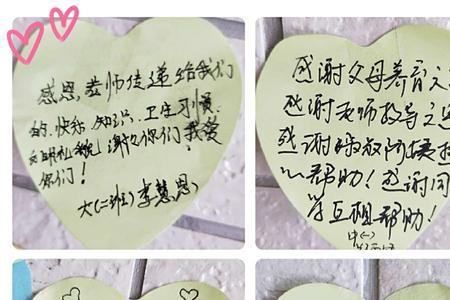 感恩，老师传递给我们
的，快乐、知识、卫生习惯、
文明礼貌，谢谢你们！我爱
你们！
大(二班)李慧恩
感谢父母养育之
感谢老师教导之
感谢
帮助！感谢同
学互相帮助！
中(一)